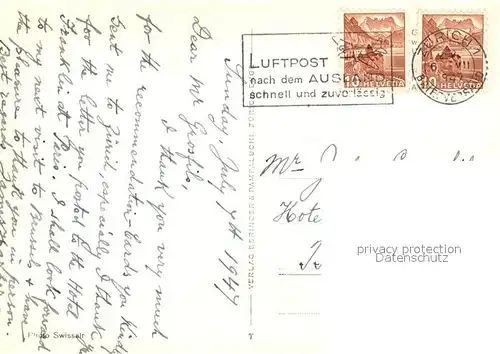 Sunday, July 7th 1947
Dear Mr Grosfils,
I thank you very much
for the recommendation-cards you kindly
sent me to Zürich, especially I thank
for the letter you posted to the Hotel
Franklin at Paris. I shall look forward
to my next visit to Brussels & have
the pleasure to thank you in person.
Best regards
Photo Swissair
VERLAG BERINGER & PAMPALUCHI, ZÜRICH
LUFTPOST
nach dem AUSLAND
schnell und zuverlässig
10 HELVETIA
HELVETIA
ZÜRICH
Mr
Hote
privacy protection
Datenschutz